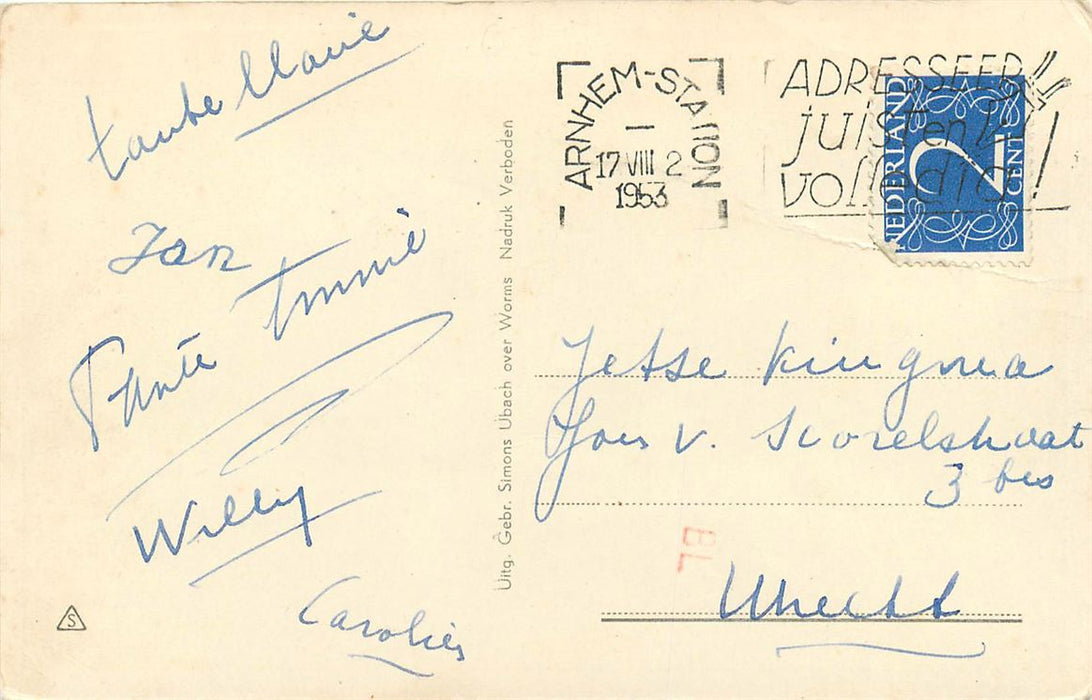 tante Marie
Jan
Tante Timmie
Willy
Carolien
S
Uitg. Gebr. Simons Ubach over Worms Nadruk Verboden
ARNHEM-STATION
17 VIII 2
1953
ADRESSEER
juist en
volledig!
NEDERLAND
2
CENT
Jetse Kingma
Jan v. Scorelstraat
3 bis
BL
Utrecht